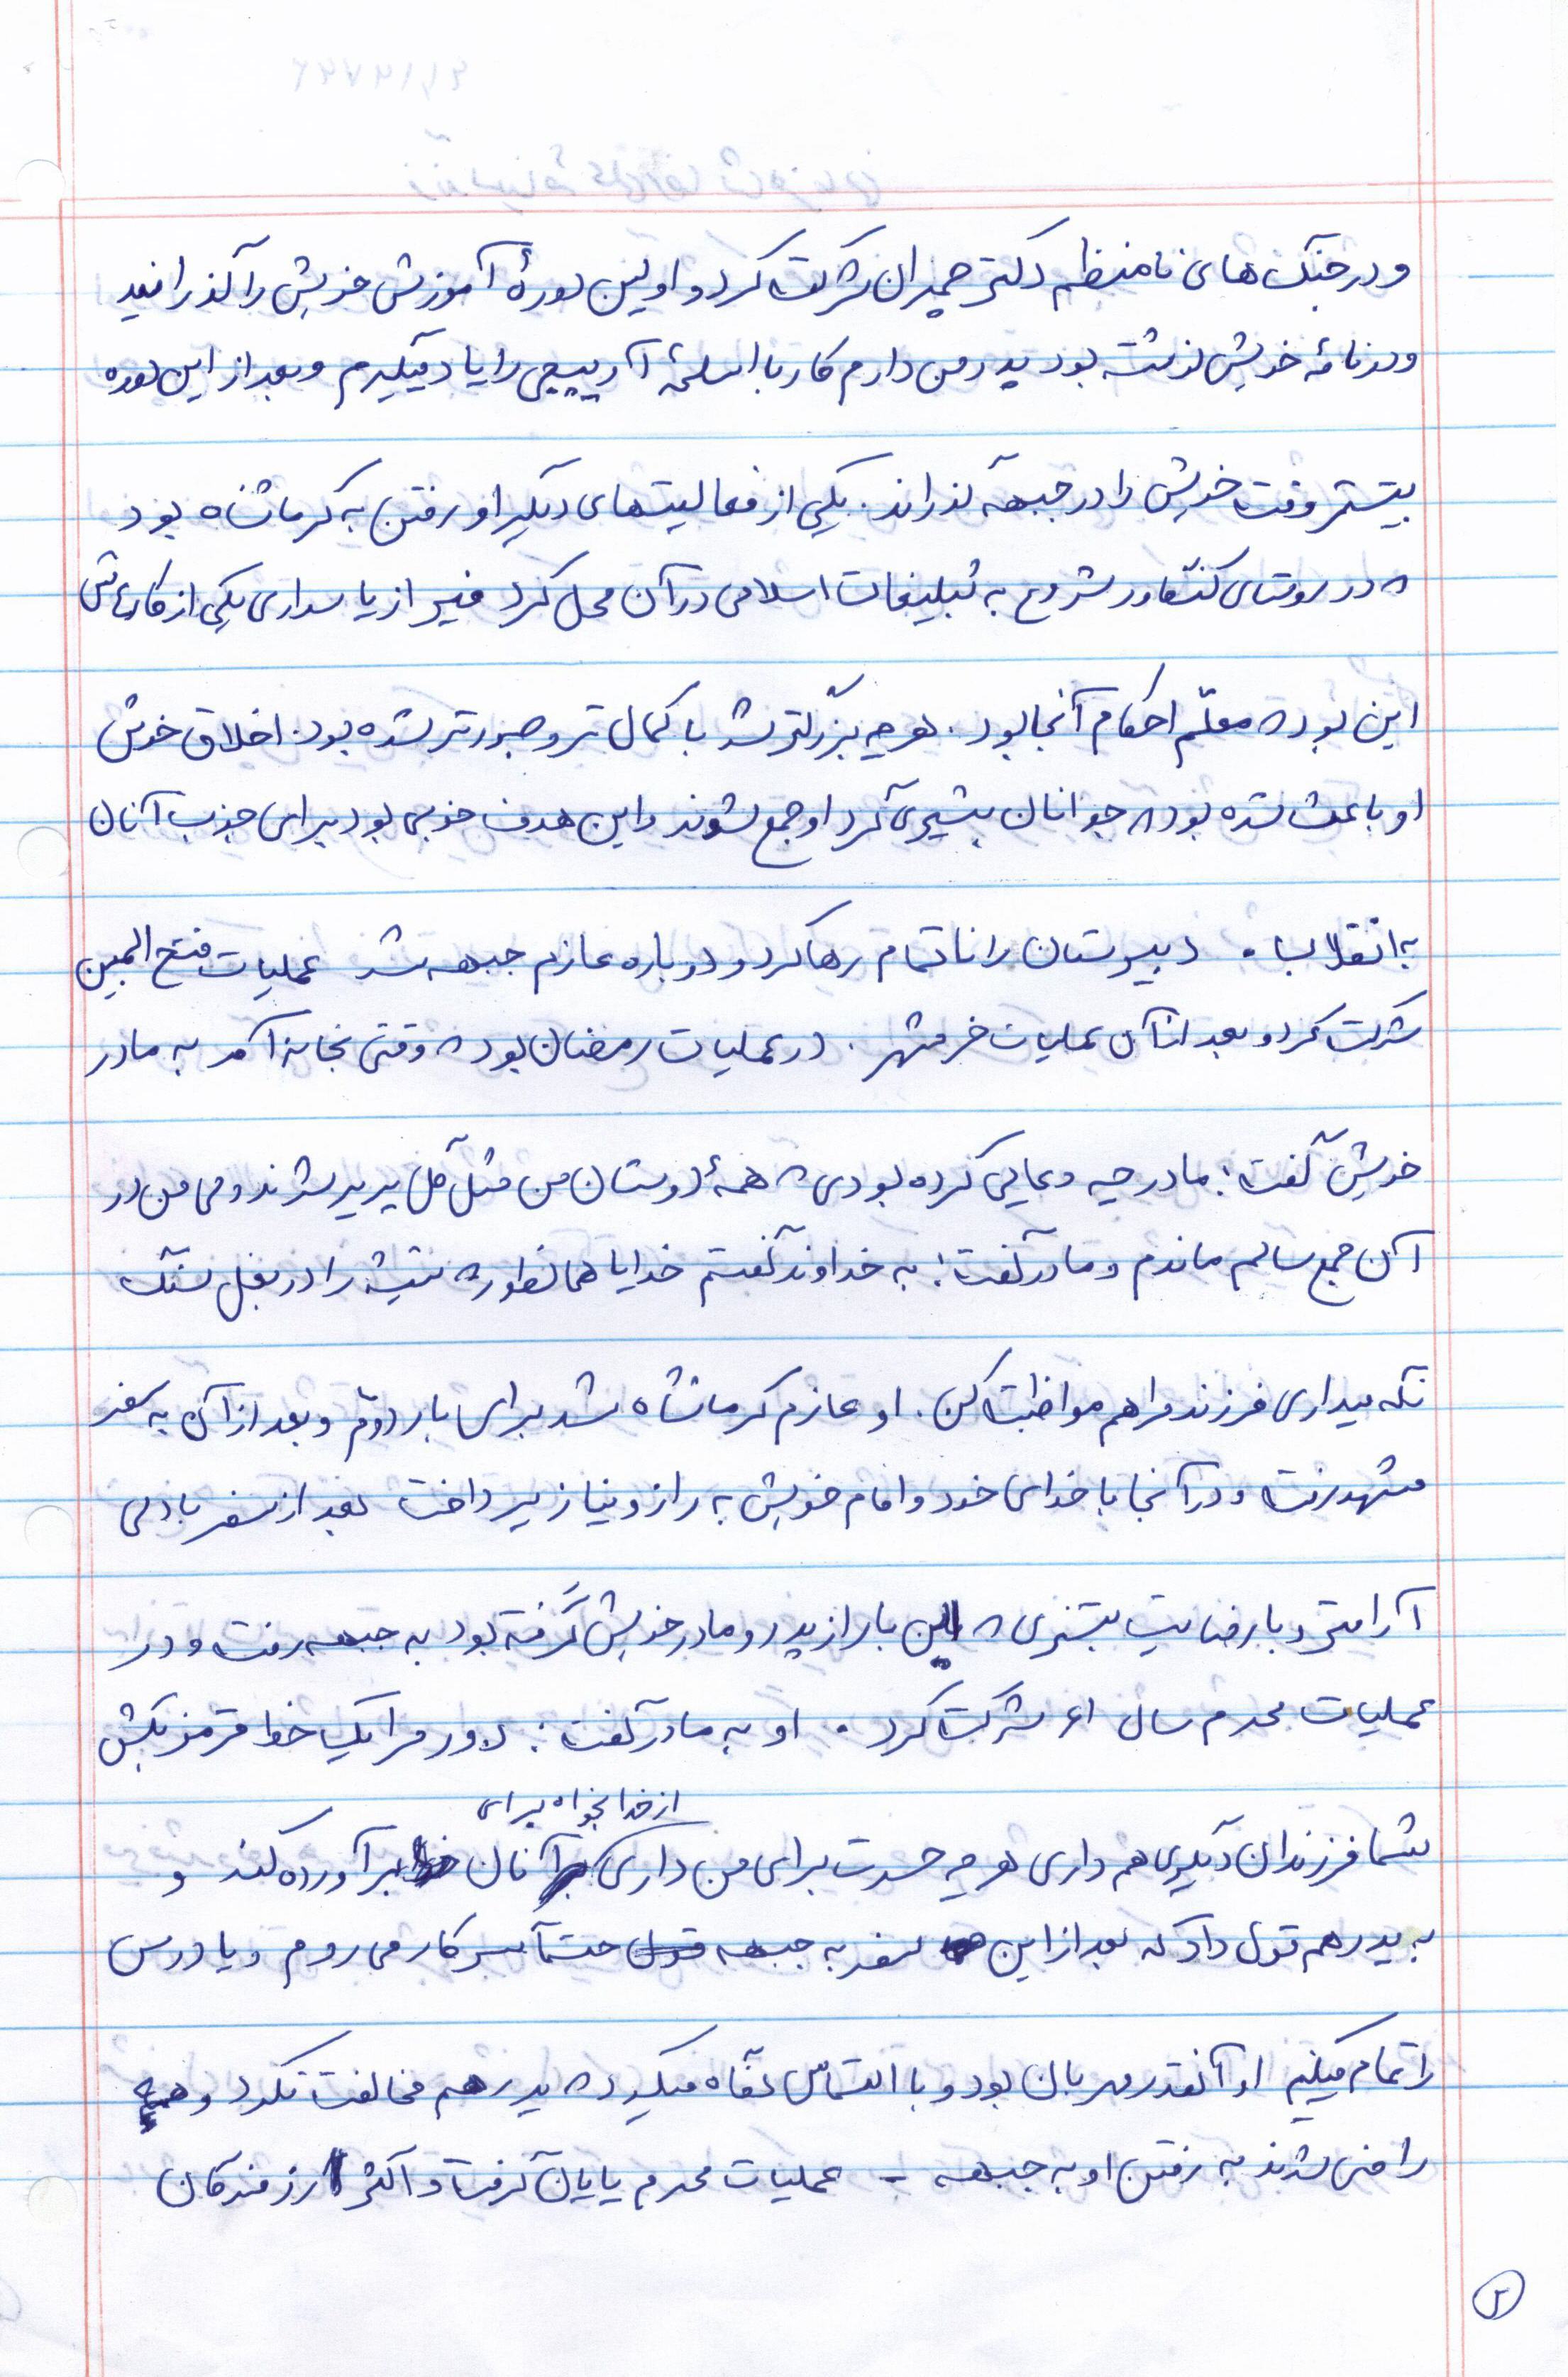 و در جنگ های نامنظم دکتر چمران شرکت کرد و اولین دورهٔ آموزش خویش را گذرانید
و در نامهٔ خویش نوشته بود پدر من دارم کار با اسلحهٔ آرپیجی را یاد میگیرم و بعد از این دوره
بیشتر وقت خویش را در جبهه گذراند. یکی از فعالیتهای دیگر او رفتن به کرمانشاه بود
که در روستای کنگاور شروع به تبلیغات اسلامی در آن محل کرد غیر از پاسداری یکی از کارهاش
این بود که معلّم احکام آنجا بود. هر چه بزرگتر شد با کمال تر و صبورتر شده بود. اخلاق خوش
او باعث شده بود که جوانان بیشیری گرد او جمع شوند و این هدف خوبی بود برای جذب آنان
به انقلاب. دبیرستان را ناتمام رها کرد و دوباره عازم جبهه شد عملیات فتح المبین
شرکت کرد و بعد از آن عملیات خرمشهر. در عملیات رمضان بود که وقتی بخانه آمد به مادر
خویش گفت: مادر چه دعایی کرده بودی که همهٔ دوستان من مثل گل پرپر شدند ولی من در
آن جمع سالم ماندم و مادر گفت: به خداوند گفتم خدایا همانطور که شیشه را در بغل سنگ
نگه میداری فرزند مرا هم مواظبت کن. او عازم کرمانشاه شد برای بار دوّم و بعد از آن به سفر
مشهد رفت و در آنجا با خدای خود و امام خویش به راز و نیاز پرداخت بعد از سفر با دلی
آرامتر و با رضایت بیشتری که این بار از پدر و مادر خویش گرفته بود به جبهه رفت و در
عملیات محرم سال ۶۱ شرکت کرد. او به مادر گفت: دور مرا یک خط قرمز بکش
از خدا بخواه برای
شما فرزندان دیگری هم داری هر چه حسرت برای من داری آنان برآورده کند و
به پدر هم قول داد که بعد از این سفر به جبهه حتماً سر کار می روم و یا درس
را تمام میکنم او آنقدر مهربان بود و با التماس نگاه میکرد که پدر هم مخالفت نکرد و همه
راضی شدند به رفتن او به جبهه - عملیات محرم پایان گرفت و اکثر رزمندگان
۲